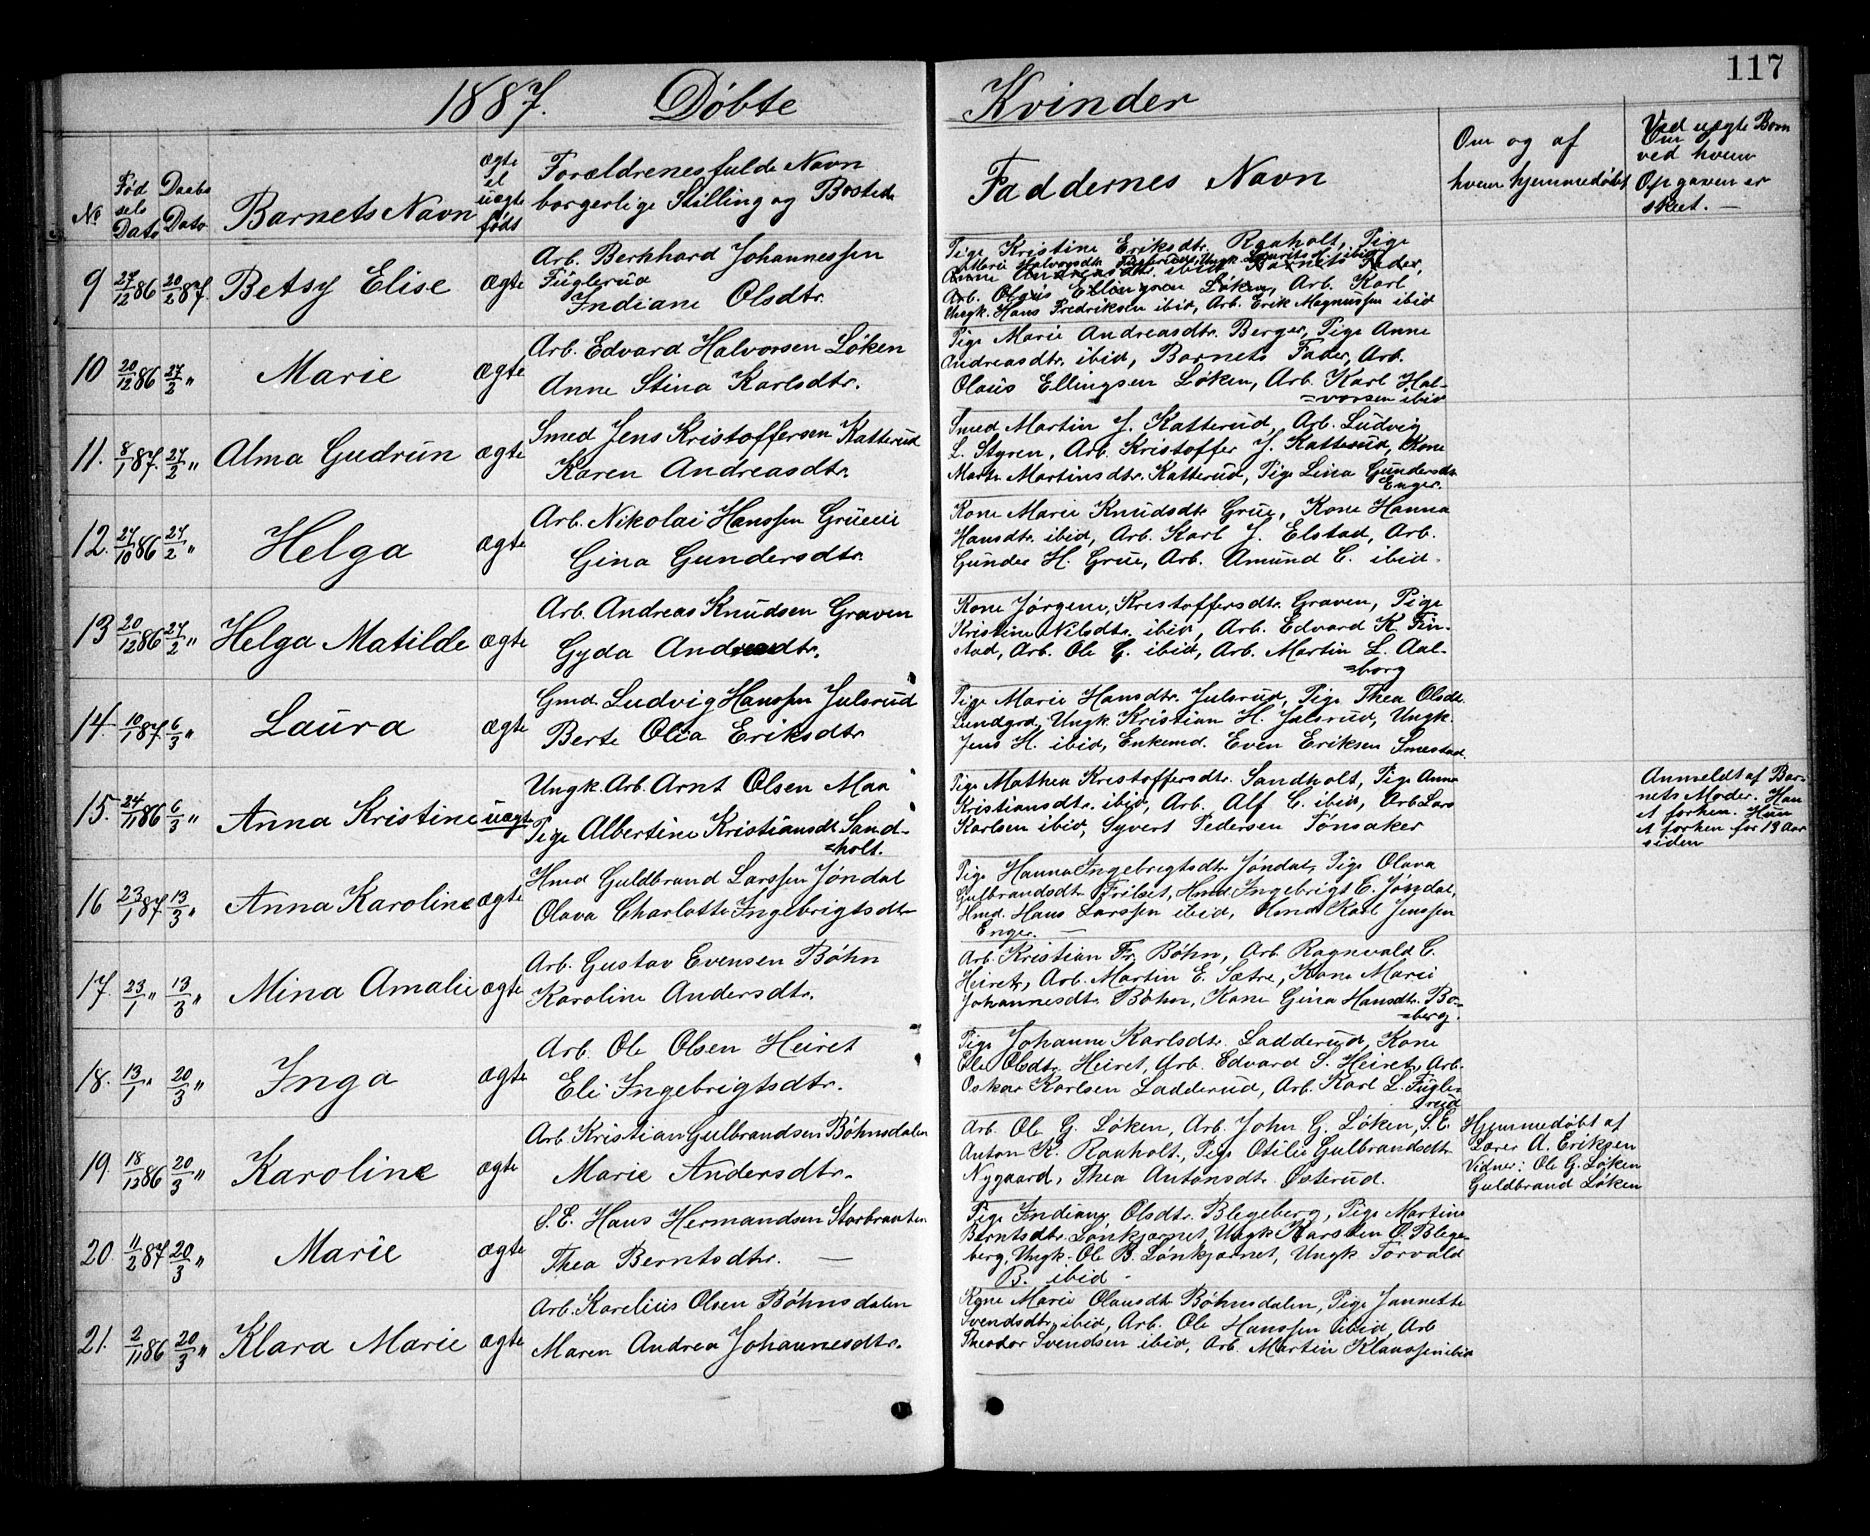 117
1887. Døbte Kvinder
No
Fød
sels
Dato
Daabs
Dato
Barnets Navn
ægte
el
uægte
født
Forældrenes fulde Navn
borgerlige Stilling og Bosted
Faddernes Navn
Om og af
hvem hjemmedøbt
Ved uægte Børn
ved hvem
Opgaven er
skeet. —
9 27/12 86 20/2 87. Betsy Elise ægte
Arb. Bernhard Johannessen
Füglerud
Indiane Olsdtr.
Pige Kristine Eriksdtr. Raaholt, Pige
Arb. Karl
Ungk. Hans Fredriksen ibid, Arb. Erik Magnussen ibid
10 20/12 86 27/2 " Marie ægte
Arb. Edvard Halvorsen Løken
Anne Stina Karlsdtr.
Pige Marie Andreasdtr. Berger, Pige Anne
Andreasdtr. ibid, Barnets Fader, Arb.
Olaüs Ellingsen Løken, Arb. Karl Hal-
=vorsen ibid
11. 8/1 87. 27/2 " Alma Gudrün ægte
Smed Jens Kristoffersen Katterüd
Karen Andreasdtr.
Smed Martin J. Katterüd, Arb. Lüdvig
L. Styren, Arb. Kristoffer J. Katterüd, Kone
Marth. Martinsdtr. Katterüd, Pige Lina Gündersdtr
Enger.
12. 27/10 86 27/2 " Helga ægte
Arb. Nikolai Hanssen Grüeeie
Gina Gundersdtr.
Kone Marie Knüdsdtr Grüe, Kone Hanna
Hansdtr. ibid, Arb. Karl J. Elstad, Arb.
Günder H. Grüe, Arb. Amünd C. ibid.
13 20/12 86 27/2 " Helga Matilde ægte
Arb. Andreas Knüdsen Graven
Gyda
Kone Jørgine Kristoffersdtr. Graven, Pige
Kristine Nilsdtr. ibid, Arb. Edvard K. Fin-
stad, Arb. Ole G. ibid, Arb. Martin L. Aal-
=borg
14 10/1 87. 6/3 " Laüra ægte
Gmd. Ludvig Hanssen Julsrüd
Berte Olea Eriksdtr
Pige Marie Hansdtr. Julsrud, Pige Thea Olsdtr.
Lundgrd, Ungk. Kristian H. Julsrud, Ungk.
Jens H. ibid, Enkemd. Even Eriksen Smestad.
15. 24/11 86 6/3 " Anna Kristine uægte
Ungk. Arb. Arnt Olsen Maa
Pige Albertine Kristiansdt. Sand-
=holt.
Pige Mathea Kristoffersdtr. Sandholt, Pige Anna
Kristiansdtr. ibid, Arb. Alf C. ibid, Arb Lars
Karlsen ibid, Syvert Pedersen Tønsaker
Anmeldt af Bar-
nets Moder. Han
et forhen. Hun
et forhen for 13 Aar
siden
16 23/1 87 13/3 " Anna Karoline ægte
Hmd Guldbrand Larssen Jøndal
Olava Charlotte Ingebrigtsdtr
Pige Hanna Ingebrigtsdtr Jøndal, Pige Olava
Gulbrandsdtr Frilset, Hmd. Ingebrigt E. Jøndal,
Hmd. Hans Larssen ibid, Hmd Karl Jenssen
Enger. —
17. 23/1 " 13/3 " Mina Amalie ægte
Arb. Gustav Evensen Bøhn
Karoline Andersdtr.
Arb. Kristian Fr. Bøhn, Arb Ragnvald C.
Heiret, Arb. Martin E. Sætre, Kone Marie
Johannesdtr Bøhn, Kone Gina Hansdtr. Bo-
=berg.
18. 13/1 " 20/3 " Inga ægte
Arb. Ole Olsen Heiret
Eli Ingebrigtsdtr.
Pige Johanne Karlsdtr Ladderud, Kone
Eli Olsdtr. Heiret, Arb. Edvard S. Heiret, Arb.
Oskar Karlsen Ladderud, Arb. Karl L. Fügle-
=rud
19. 18/12 86 20/3 " Karoline ægte
Arb. Kristian Gulbrandsen Bøhnsdalen
Marie Andersdtr.
Arb. Ole G. Løken, Arb. John G. Løken, S. E.
Anton K. Raaholt, Pige Otilie Gulbrandsdtr
Nygaard, Thea Antonsdtr. Østerud.
Hjemmedøbt af
Lærer A. Eriksen
Vidner: Ole G. Løken
Guldbrand Løken
20. 11/2 87 20/3 " Marie ægte
S. E. Hans Hermandsen Storbraaten
Thea Berntsdtr. —
Pige Indiany Olsdtr. Blegeberg, Pige Martine
Berntsdtr. Lønkjærnet, Ungk Karsten O. Blege-
berg, Ungk. Ole B. Lønkjærnet, Ungk Torvald
B. ibid.
21. 2/11 86 20/3 " Klara Marie ægte
Arb. Karelius Olsen Bøhnsdalen
Maren Andrea Johannesdtr.
Kone Marie Olausdtr Bøhnsdalen, Pige Jannette
Svendsdtr. ibid, Arb. Ole Hanssen ibid, Arb
Theodor Svendsen ibid, Arb. Martin Klaussen ibid